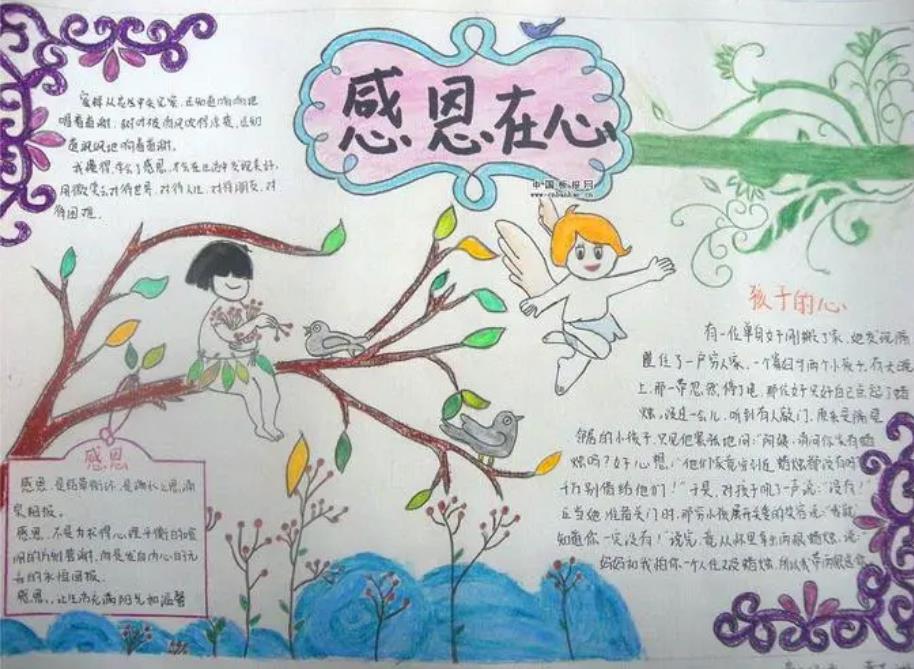 感恩在心
中国板报网
www.cnbanbao.cn
落花从花丛中
唱着
地响着着谢。
我懂得,学会了感恩,才会在生活中发现美好,
用微笑去对待世界,对待人生,对待朋友,对
待困难。
孩子的心
有一位单身女子刚搬了家,她发现隔
壁住了一户穷人家,一个寡妇与两个小孩子。有天晚
上,那一带忽然停了电,那位女子只好自己点起了蜡
烛。没过一会儿,听到有人敲门,原来是隔壁
邻居的小孩子,只见他紧张地问:"阿姨,请问你家有蜡
烛吗?"女子心想:"他们家竟穷到连蜡烛都没有吗?
千万别借给他们!"于是,对孩子吼了一声说:"没有!"
正当她准备关门时,那穷小孩展开关爱的笑容说:"我就
知道你一定没有!"说完,竟从怀里拿出两根蜡烛,说:"
妈妈和我怕你一个人住又没蜡烛,所以我带两根送你
感恩
感恩,是结草衔环,是滴水之恩,涌
泉相报。
感恩,不是为求得心理平衡的喧
闹的片刻答谢,而是发自内心的无
言的永恒回报。
感恩,让生活充满阳光和温馨